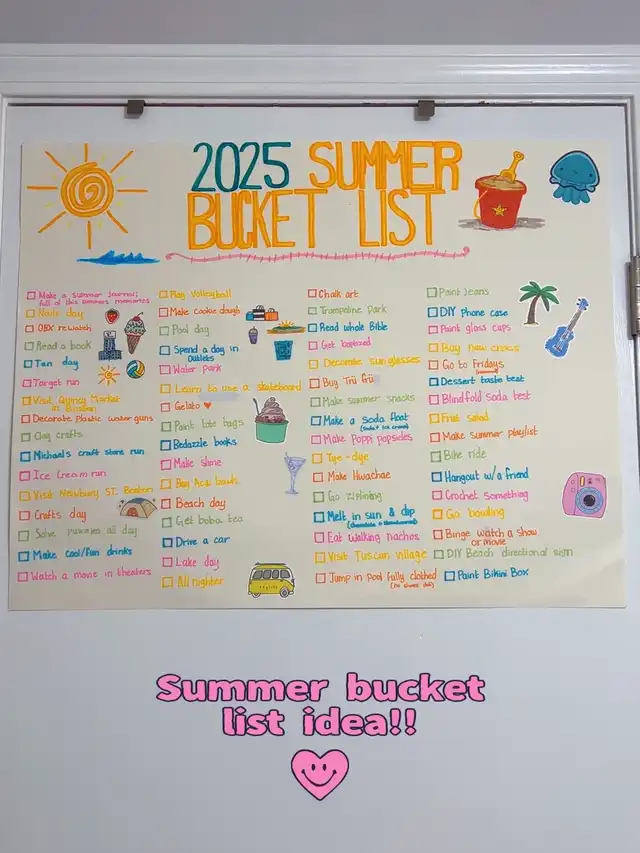 2025 SUMMER
BUCKET LIST
Make a summer journal;
full of this summers memories
Nails day
OBX rewatch
Read a book
Tan day
Target run
Visit Quincy Market
in Boston
Decorate Plastic water guns
Clay crafts
Michael's craft store run
Ice Cream run
Visit Newbury ST. Boston
Crafts day
Solve puzzles all day
Make cool/fun drinks
Watch a movie in theaters
Play Volleyball
Make cookie dough
Pool day
Spend a day in
Outlets
Water Park
Learn to use a skateboard
Gelato
Paint tote bags
Bedazzle books
Make slime
Buy Acai bowls
Beach day
Get boba tea
Drive a car
Lake day
All nighter
Chalk art
Trampoline Park
Read whole Bible
Get baptized
Decorate sunglasses
Buy Trü frü
Make summer snacks
Make a Soda float
(Soda + ice cream)
Make Poppi popsicles
Tye-dye
Make Hwachae
Go ziplining
Melt in sun & dip
Eat Walking nachos
Visit Tuscan village
Jump in pool fully clothed
Paint jeans
DIY phone case
Paint glass cups
Buy new crocs
Go to Fridays
Dessert taste test
Blindfold soda test
Fruit salad
Make summer playlist
Bike ride
Hangout w/a friend
Crochet something
Go bowling
Binge watch a show
or movie
DIY Beach directional sign
Paint Bikini Box
Summer bucket
list idea!!